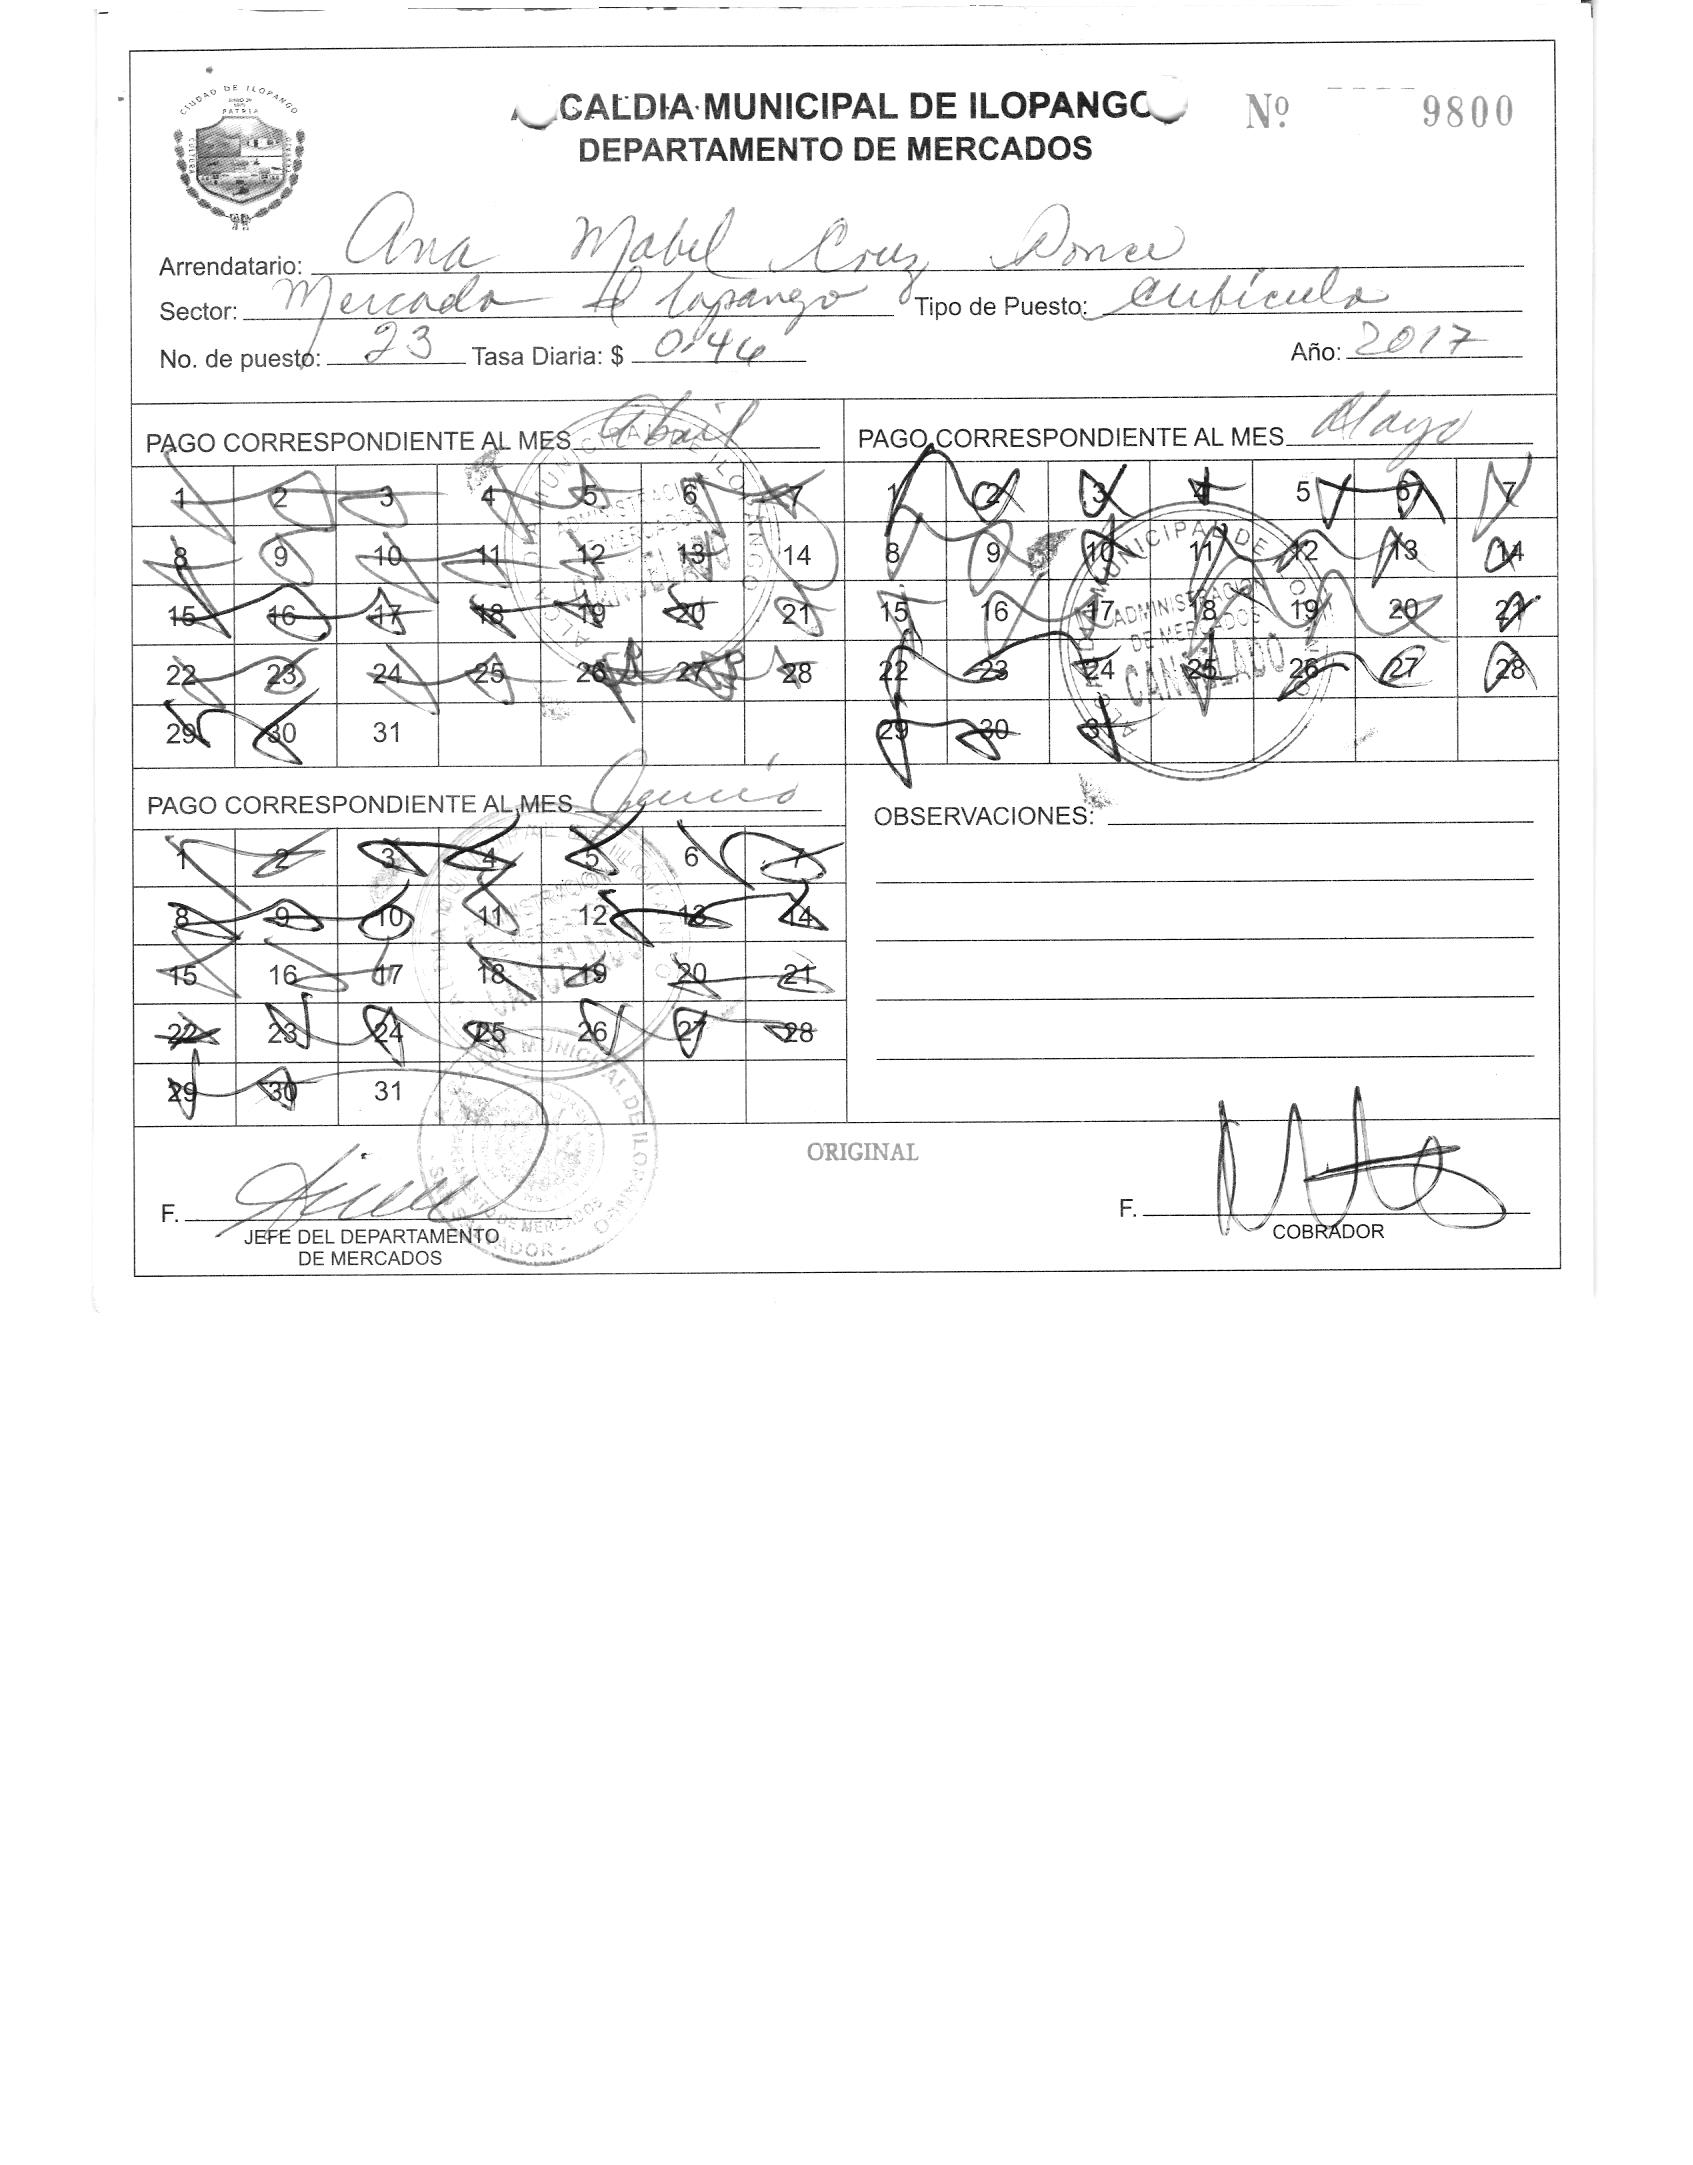 CIUDAD DE ILOPANGO
PATRIA
CULTURA
CALDIA MUNICIPAL DE ILOPANGO
DEPARTAMENTO DE MERCADOS
Nº 9800
Arrendatario: Ana Mabel Cruz Ponce
Sector: Mercado Ilopango Tipo de Puesto: Cubículo
No. de puesto: 23 Tasa Diaria: $ 0.46 Año: 2017
PAGO CORRESPONDIENTE AL MES Abril
1 2 3 4 5 6 7
8 9 10 11 12 13 14
15 16 17 18 19 20 21
22 23 24 25 26 27 28
29 30 31
PAGO CORRESPONDIENTE AL MES Mayo
1 2 3 4 5 6 7
8 9 10 11 12 13 14
15 16 17 18 19 20 21
22 23 24 25 26 27 28
29 30 31
ADMINISTRACION
DE MERCADOS
CANCELADO
PAGO CORRESPONDIENTE AL MES Junio
1 2 3 4 5 6 7
8 9 10 11 12 13 14
15 16 17 18 19 20 21
22 23 24 25 26 27 28
29 30 31
OBSERVACIONES:
ORIGINAL
F.
JEFE DEL DEPARTAMENTO
DE MERCADOS
F.
COBRADOR